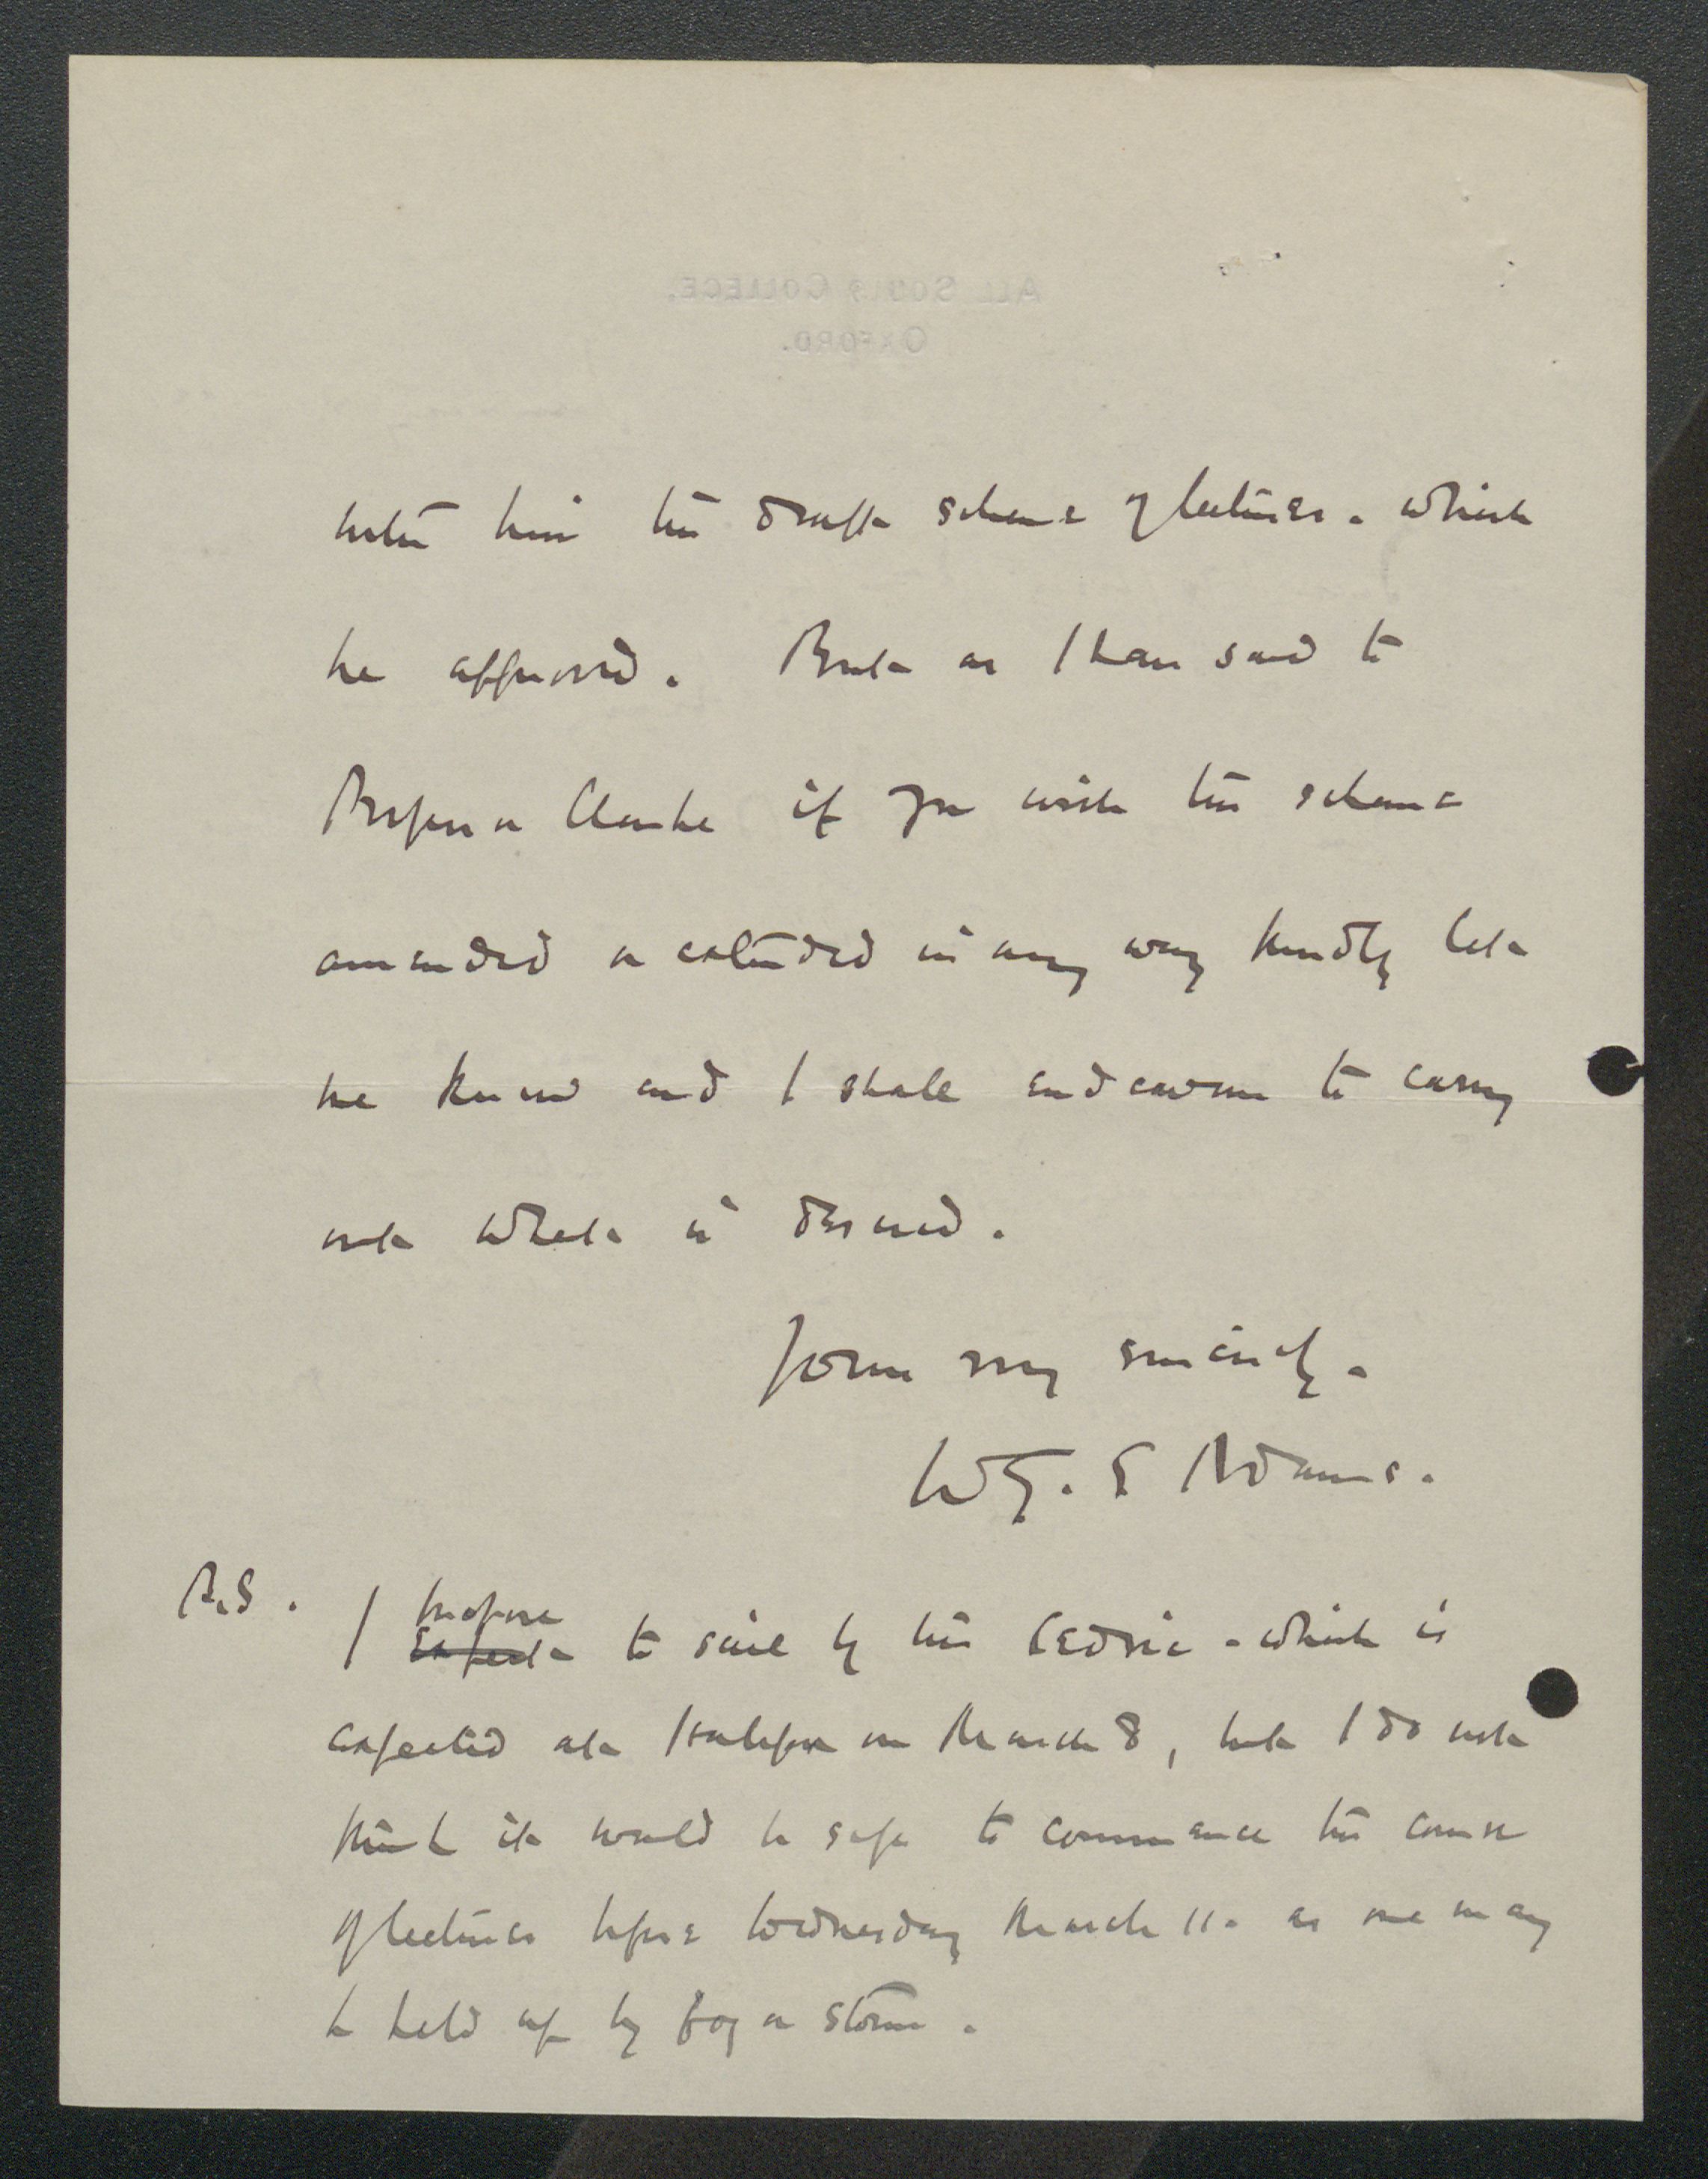 ALL SOULS COLLEGE.
OXFORD.
him the draft scheme of lectures. which
he approved. But as I have said to
Professor Clarke if you wish the scheme
amended or extended in any way kindly let
me know and I shall endeavour to carry
out what is desired.
Yours very sincerely.
W.G.S Adams.
P.S. I propose
expect to sail by the Cedric - which is
expected at Halifax on March 8, but I do not
think it would be safe to commence the course
of lectures before Wednesday March 11. as one may
be held up by fog or storm.